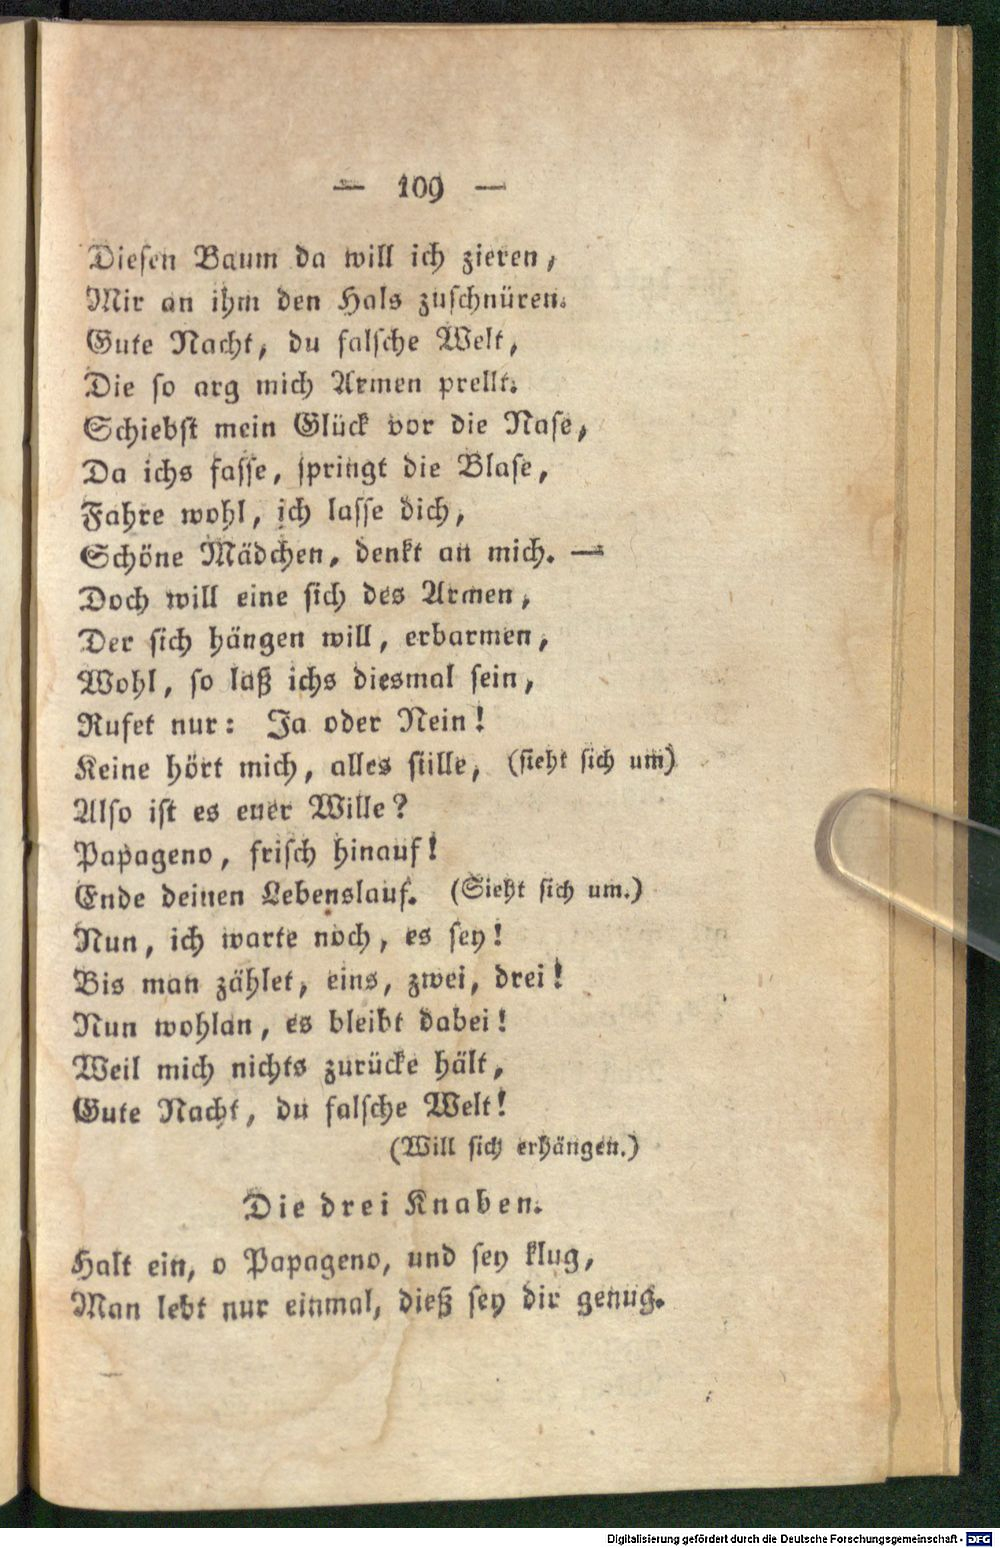 — 109 —
Diesen Baum da will ich zieren,
Mir an ihm den Hals zuschnüren.
Gute Nacht, du falsche Welt,
Die so arg mich Armen prellt.
Schiebst mein Glück vor die Nase,
Da ichs fasse, springt die Blase,
Fahre wohl, ich lasse dich,
Schöne Mädchen, denkt an mich. —
Doch will eine sich des Armen,
Der sich hängen will, erbarmen,
Wohl, so laß ichs diesmal sein,
Rufet nur: Ja oder Nein!
Keine hört mich, alles stille, (sieht sich um)
Also ist es euer Wille?
Papageno, frisch hinauf!
Ende deinen Lebenslauf. (Sieht sich um.)
Nun, ich warte noch, es sey!
Bis man zählet, eins, zwei, drei!
Nun wohlan, es bleibt dabei!
Weil mich nichts zurücke hält,
Gute Nacht, du falsche Welt!
(Will sich erhängen.)
Die drei Knaben.
Halt ein, o Papageno, und sey klug,
Man lebt nur einmal, dieß sey dir genug.
Digitalisierung gefördert durch die Deutsche Forschungsgemeinschaft - DFG